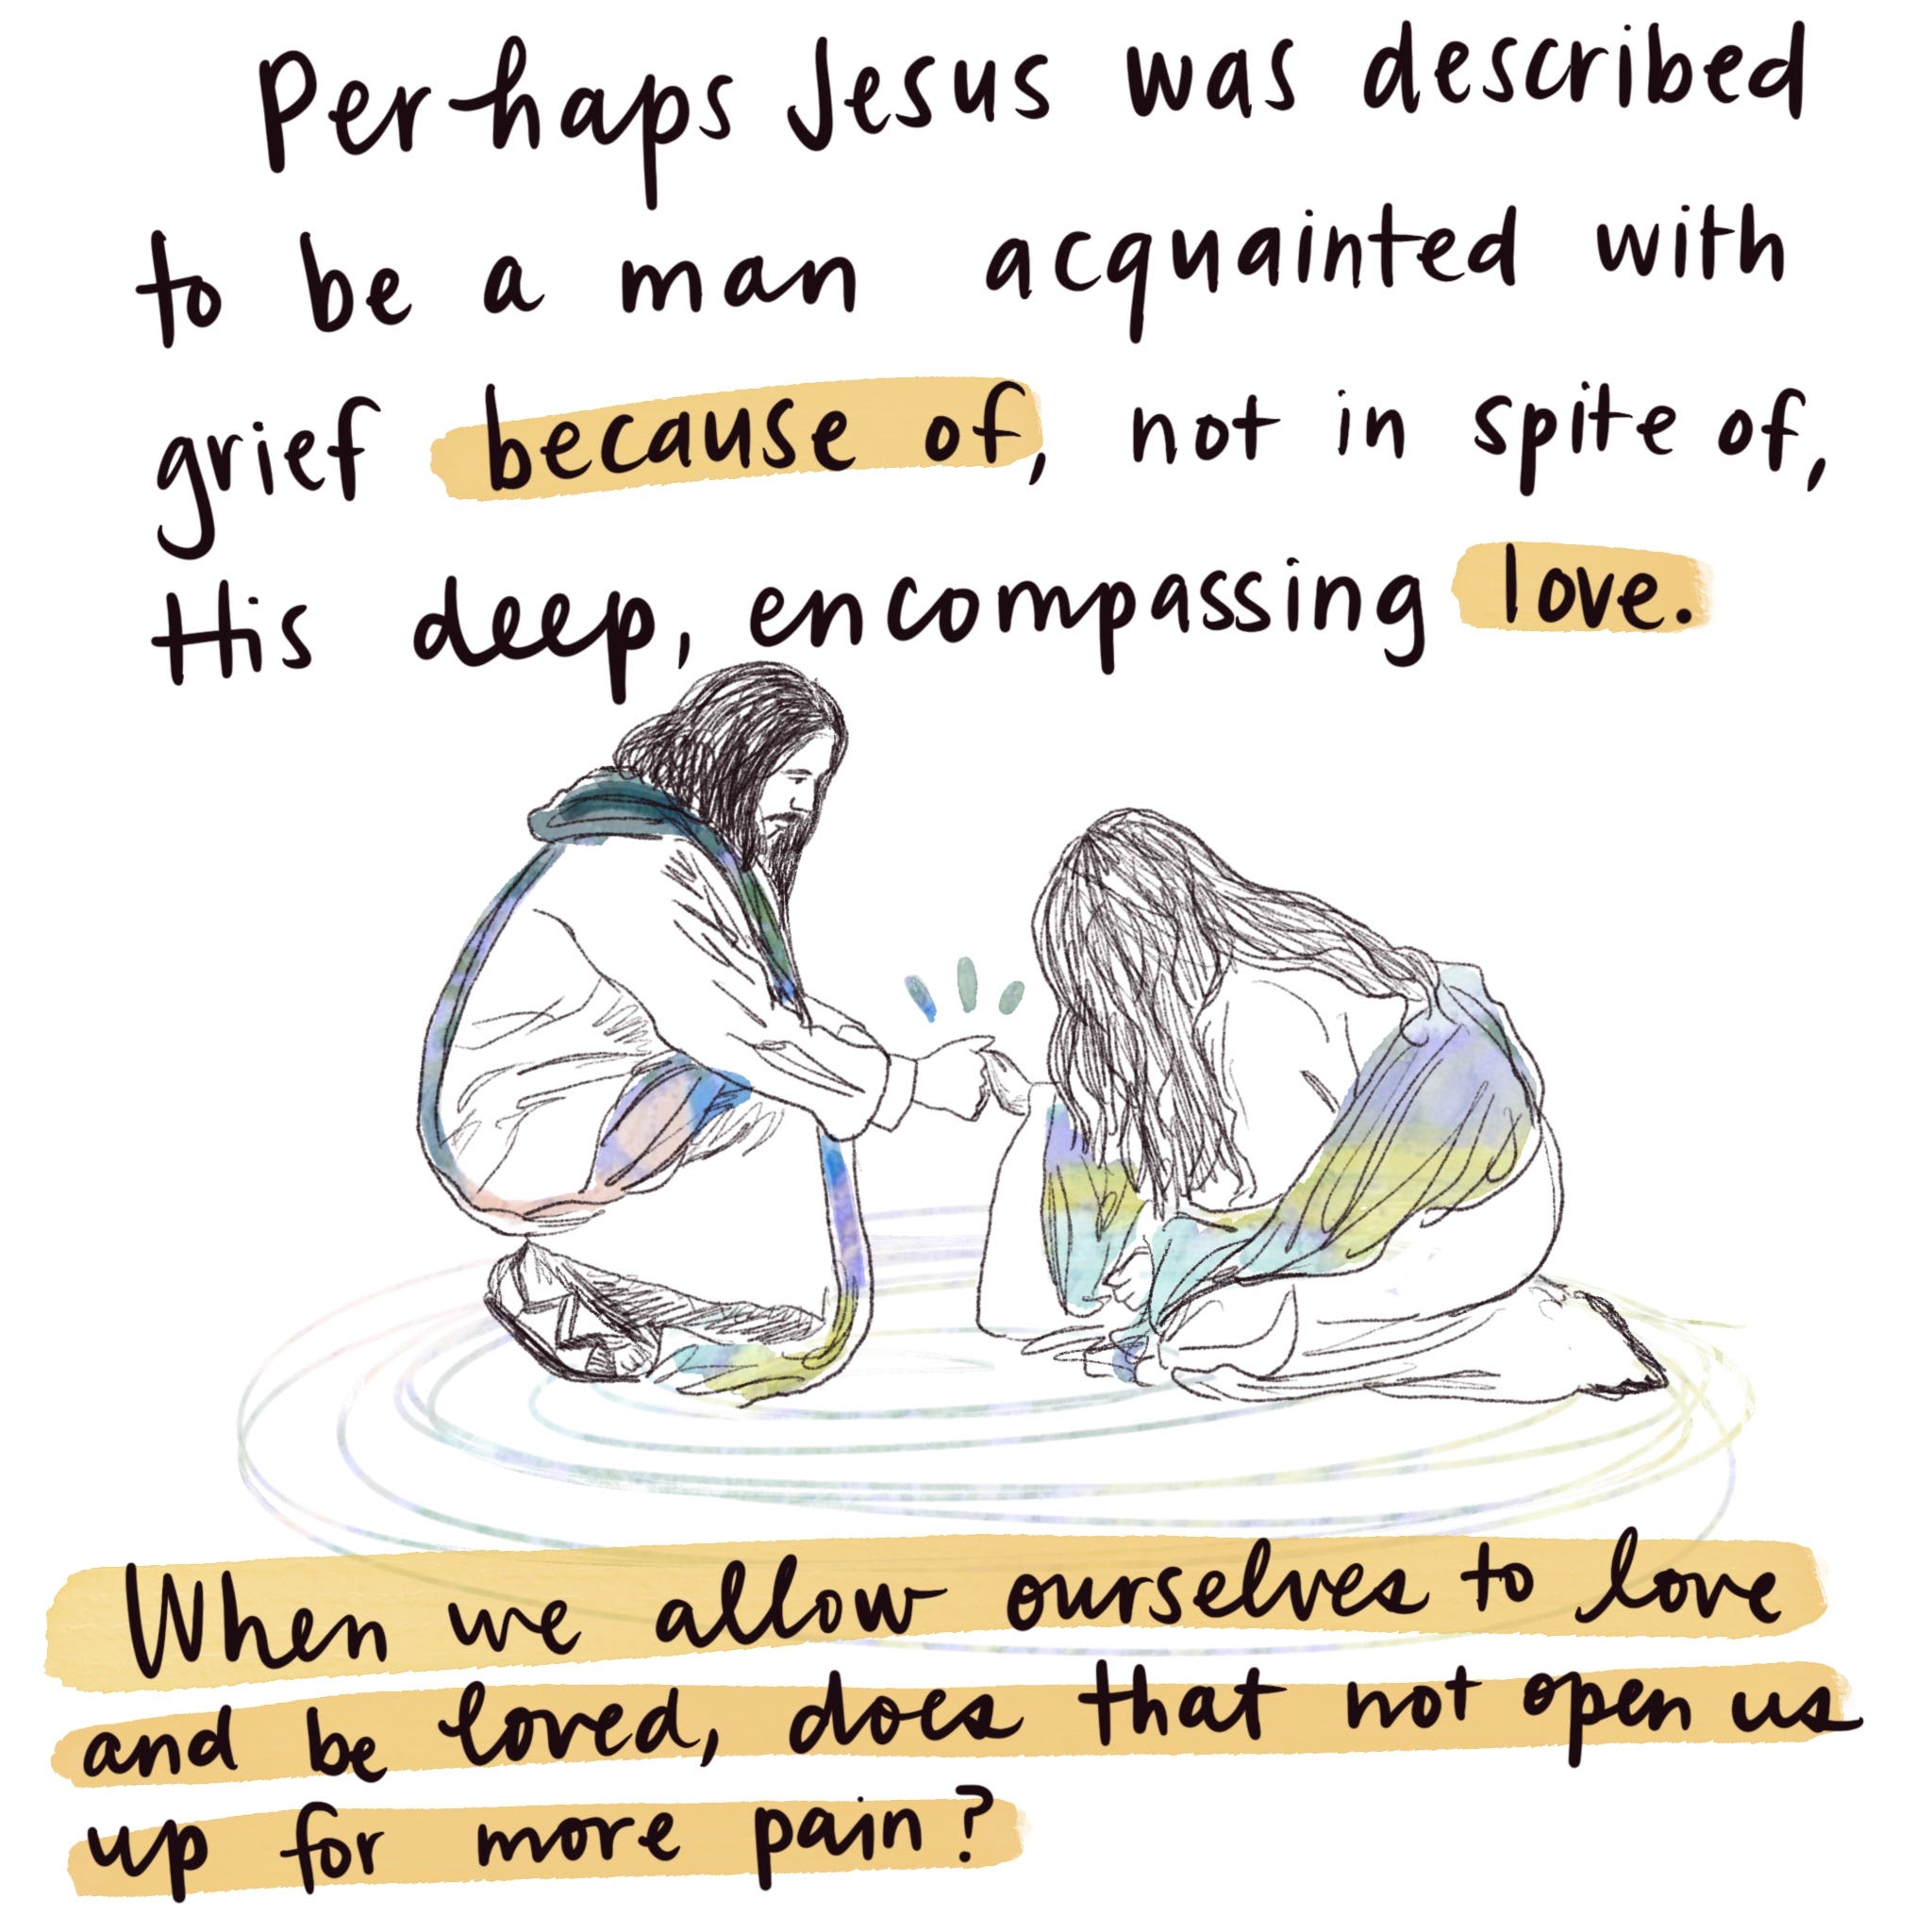 Perhaps Jesus was described
to be a man acquainted with
grief because of, not in spite of,
His deep, encompassing love.
When we allow ourselves to love
and be loved, does that not open us
up for more pain?